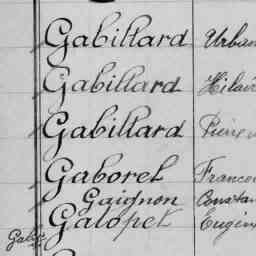 Gabillard Urban
Gabillard Hilair
Gabillard Pierre
Gaborel Franco
Gaignon Constan
Galopet Eugèn